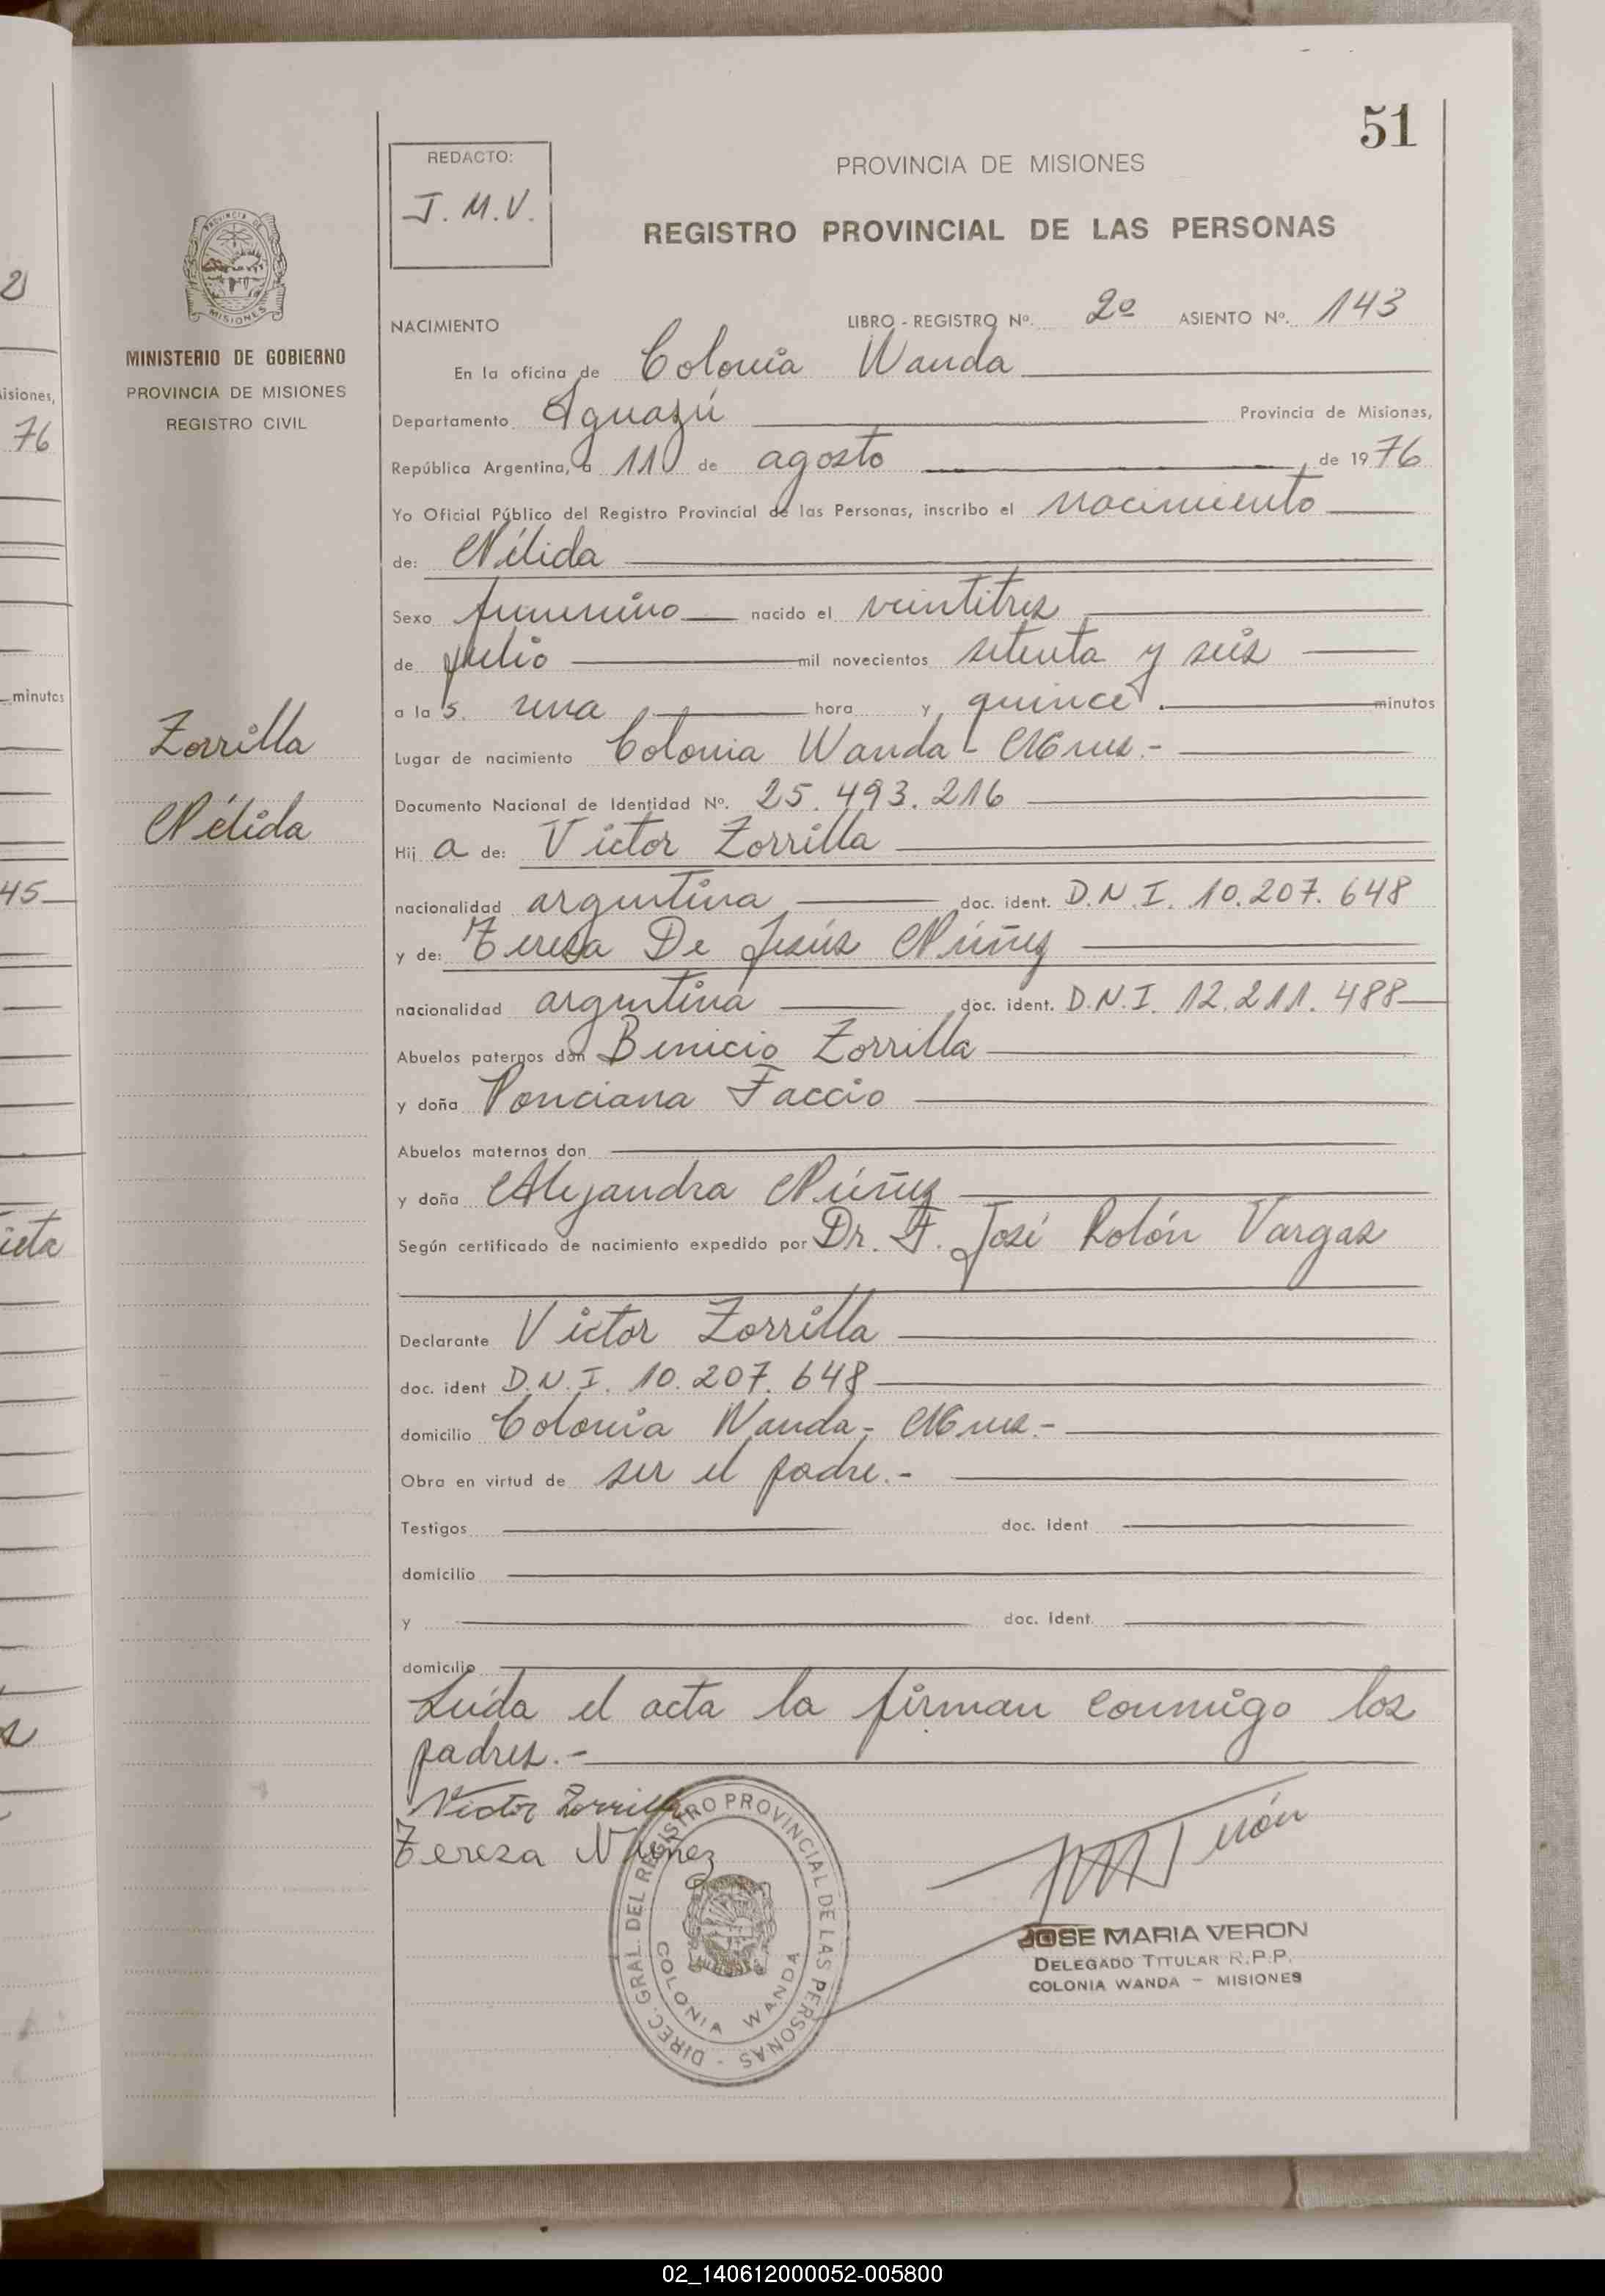 2
isiones,
76
minutos
45
ieta
51
REDACTO:
J. M. V.
PROVINCIA DE MISIONES
REGISTRO PROVINCIAL DE LAS PERSONAS
PROVINCIA DE
MISIONES
MINISTERIO DE GOBIERNO
PROVINCIA DE MISIONES
REGISTRO CIVIL
Zorrilla
Nélida
NACIMIENTO LIBRO - REGISTRO Nº. 2º ASIENTO Nº. 143
En la oficina de Colonia Wanda
Departamento Iguazú Provincia de Misiones,
República Argentina, a 11 de agosto de 1976
Yo Oficial Público del Registro Provincial de las Personas, inscribo el nacimiento
de: Nélida
Sexo femenino nacido el veintitres
de julio mil novecientos setenta y seis
a la s. una hora y quince. minutos
Lugar de nacimiento Colonia Wanda - Mnes.-
Documento Nacional de Identidad Nº. 25.493.216
Hij a de: Victor Zorrilla
nacionalidad argentina doc. ident. D.N.I. 10.207.648
y de: Teresa De Jesús Núñez
nacionalidad argentina doc. ident. D.N.I. 12.211.488
Abuelos paternos don Benicio Zorrilla
y doña Ponciana Faccio
Abuelos maternos don
y doña Alejandra Núñez
Según certificado de nacimiento expedido por Dr. F. José Rolón Vargas
Declarante Victor Zorrilla
doc. ident D.N.I. 10.207.648
domicilio Colonia Wanda - Mnes.-
Obra en virtud de ser el padre.-
Testigos doc. ident
domicilio
y doc. ident.
domicilio
Leída el acta la firman conmigo los
padres.-
Victor Zorrilla
Tereza Nuñez
DIREC. GRAL. DEL REGISTRO PROVINCIAL DE LAS PERSONAS -
COLONIA WANDA
JOSE MARIA VERON
DELEGADO TITULAR R.P.P.
COLONIA WANDA - MISIONES
02_140612000052-005800